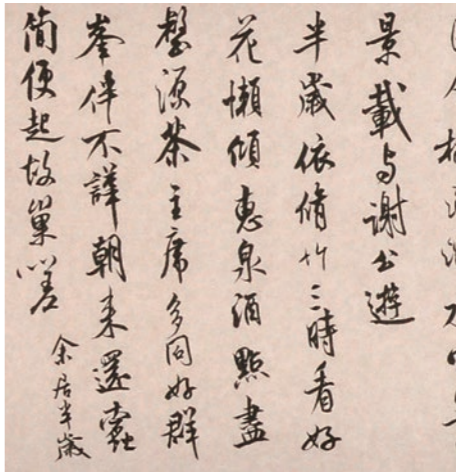 景載与謝公遊
半歲依脩竹三時看好
花懶傾惠泉酒點盡
壑源茶主席多同好群
峯伴不譁朝来還蠹
簡便起故巢嗟
余居半歲